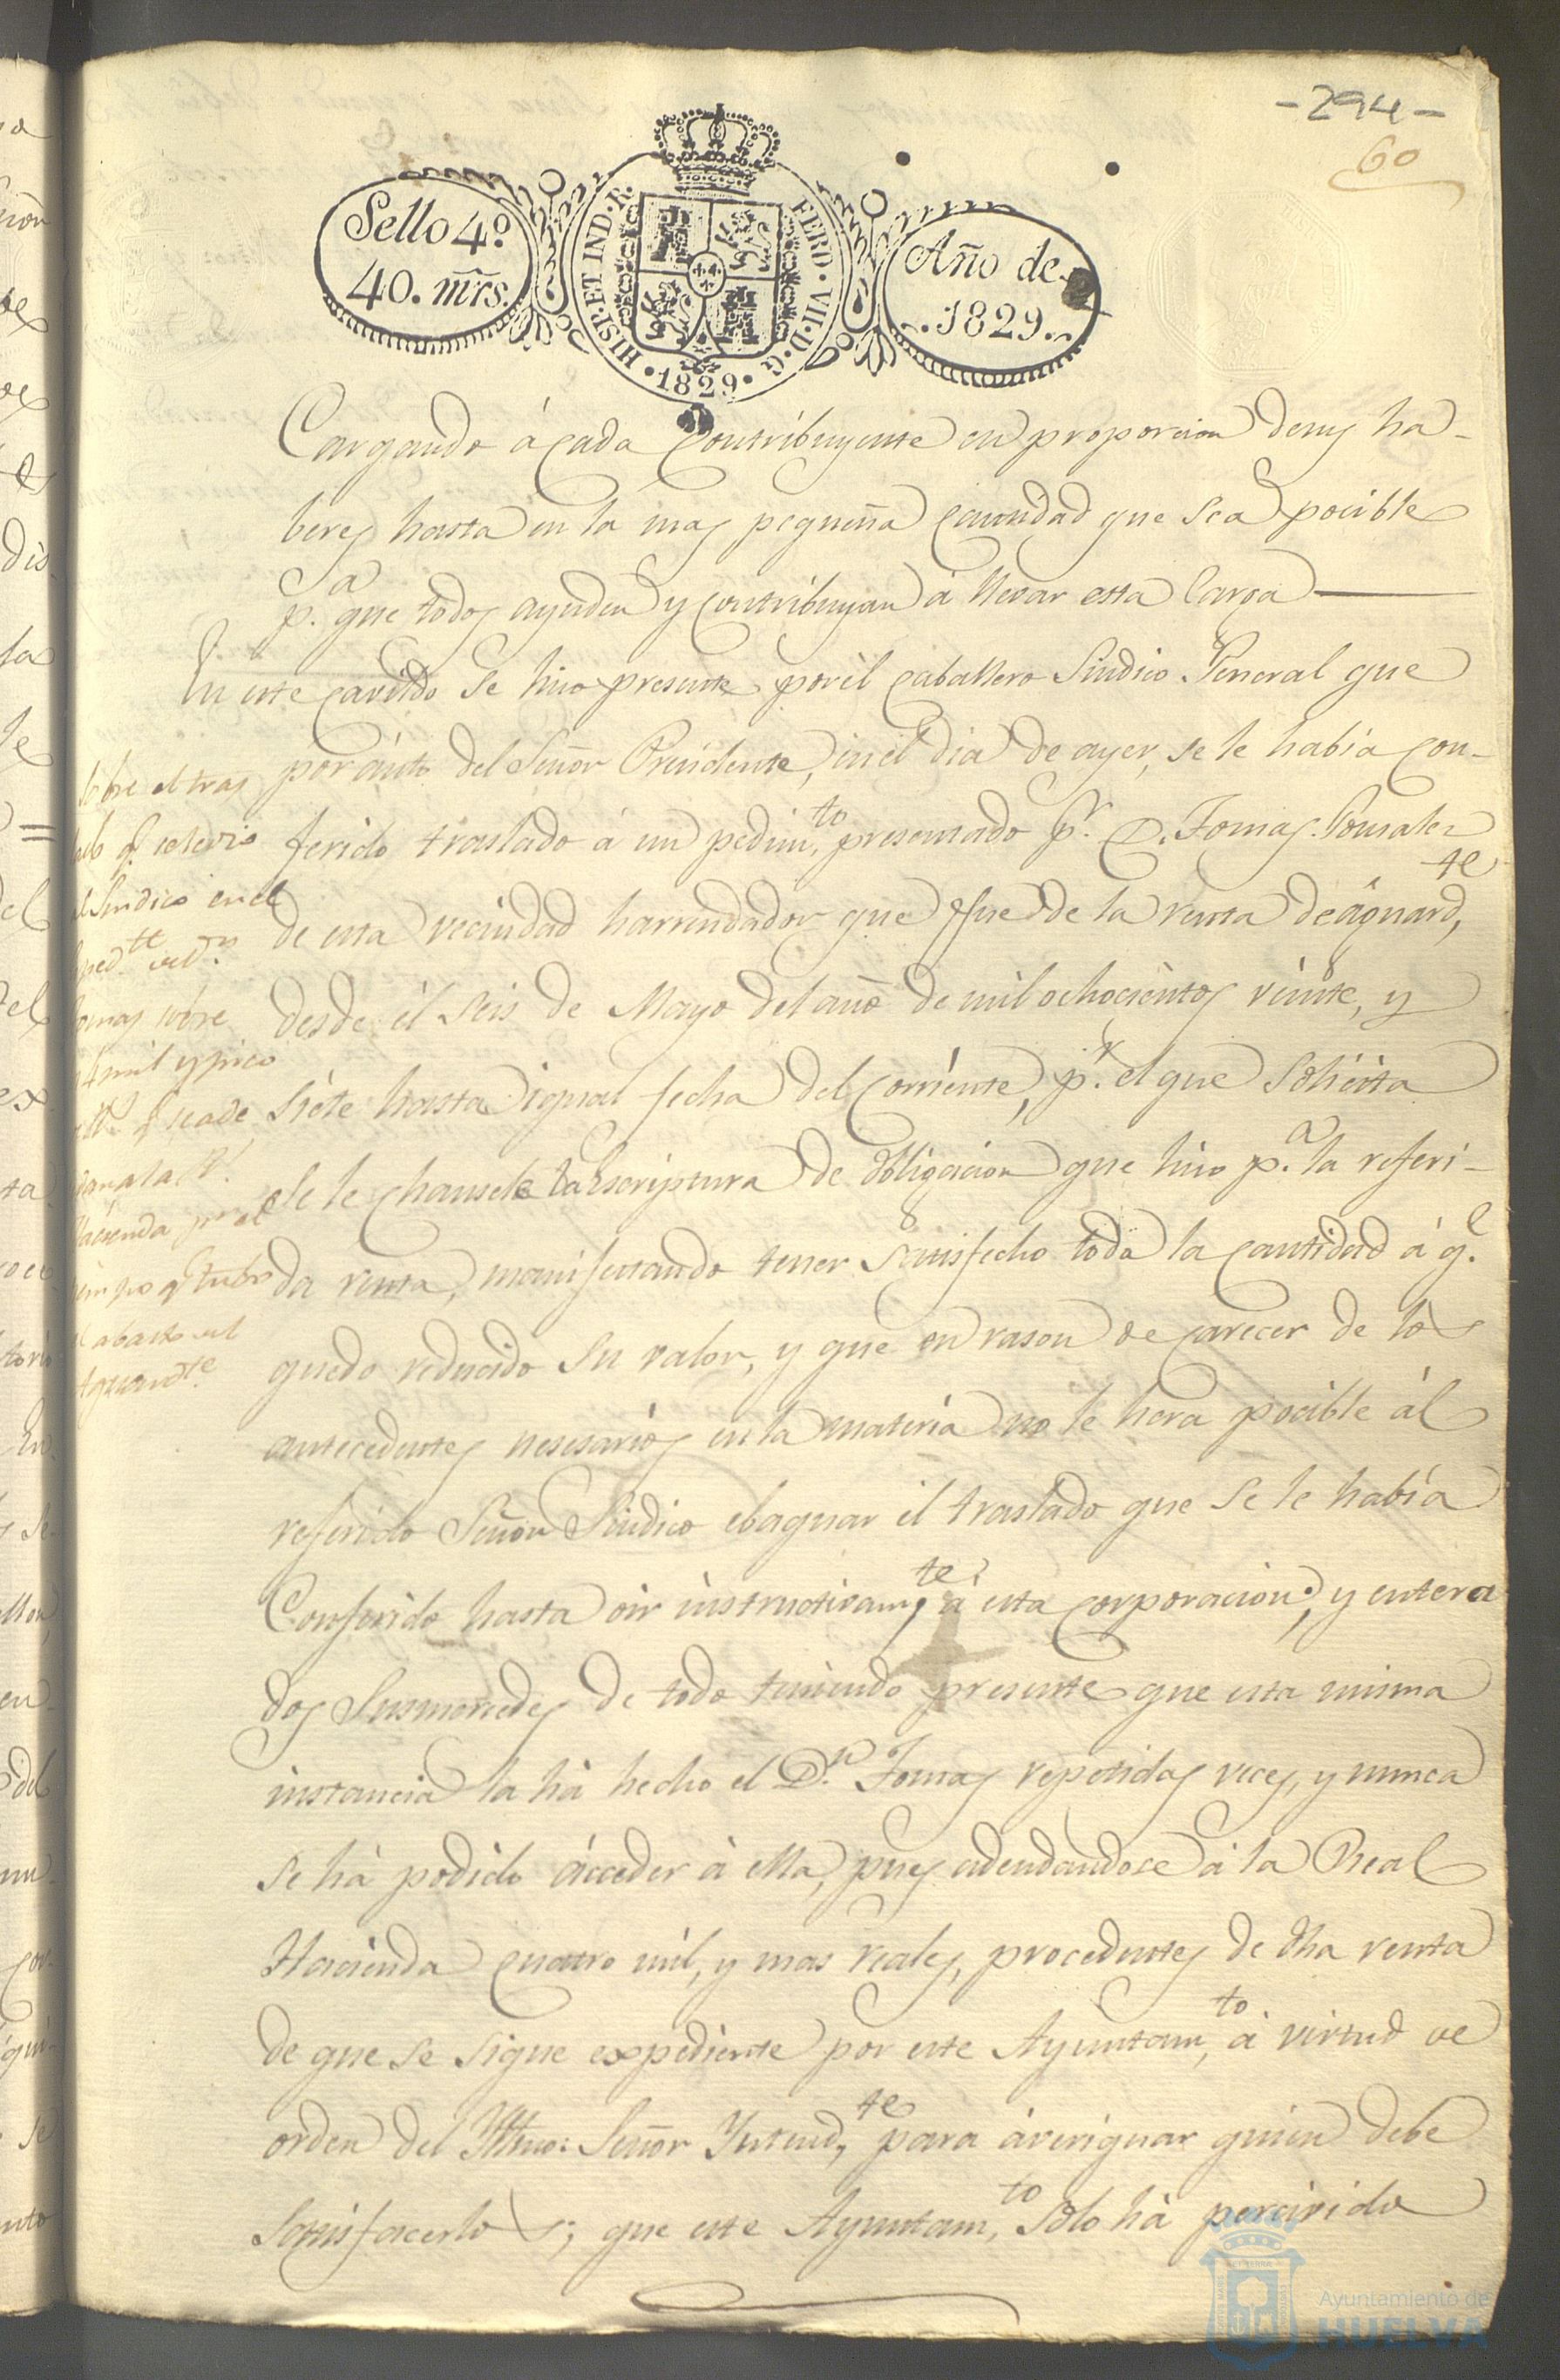 -294-
60
Sello 4º
40. mrs.
HISP. ET IND. R.
FERD. VII. D. G.
1829
Año de
1829.
Cargando á cada Contribuyente en proporcion de sus ha-
beres hasta en la mas pequeña cantidad que sea pocible
p.ª que todos ayuden y contribuyan á llevar esta Carga
En este cavildo se hiso presente por él caballero Sindico General que
por áuto del Señor Presidente, en él dia de ayer, se le habia con-
ferido traslado á un pedim.to presentado p.r D. Tomas Gonsalez
de esta vecindad harrendador que fue de la renta de águard.te
desde él seis de Mayo del año de mil ochocientos veinte, y
siete hasta igual fecha del corriente, p.r el que solicita
se le chansele la Escriptura de obligacion que hiso p.ª la referi-
da renta, manifestando tener satisfecho toda la cantidad á q.e
quedo reducido su valor, y que en rason de carecer de los
antecedentes nesesarios en la materia no le hera pocible ál
referido Señor Sindico ebaquar él traslado que se le había
Conferido hasta oir instructivam.te á esta corporacion; y entera
dos Susmercedes de todo teniendo presente que esta misma
instancia la há hecho el D.n Tomas repetidas veces, y nunca
se há podido ácceder á ella, pues adeudandose á la Real
Hacienda cuatro mil, y mas reales, procedentes de dha renta
de que se sigue expediente por este Ayuntam.to á virtud de
orden del Yltmo: Señor Yntend.te para áveriguar quien debe
satisfacerlos; que este Ayuntam.to solo há percivido
sobre el tras
lado q.e se le dio
al Sindico en el
sobre
4 mil y pico
Hacienda por el
tiempo q.e tubo
el abasto del
Aguard.te
Ayuntamiento de
HUELVA